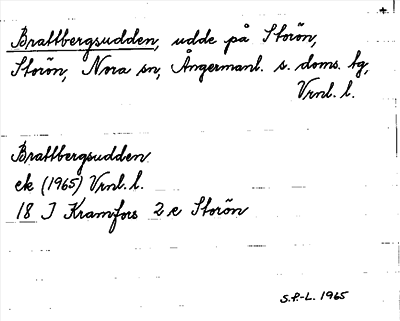 Brattbergsudden, udde på Storön,
Storön, Nora sn, Ångermanl. s. doms. tg,
Vrnl. l.
Brattbergsudden
ek (1965) Vrnl. l.
18 J Kramfors 2 e Storön
S.P-L. 1965